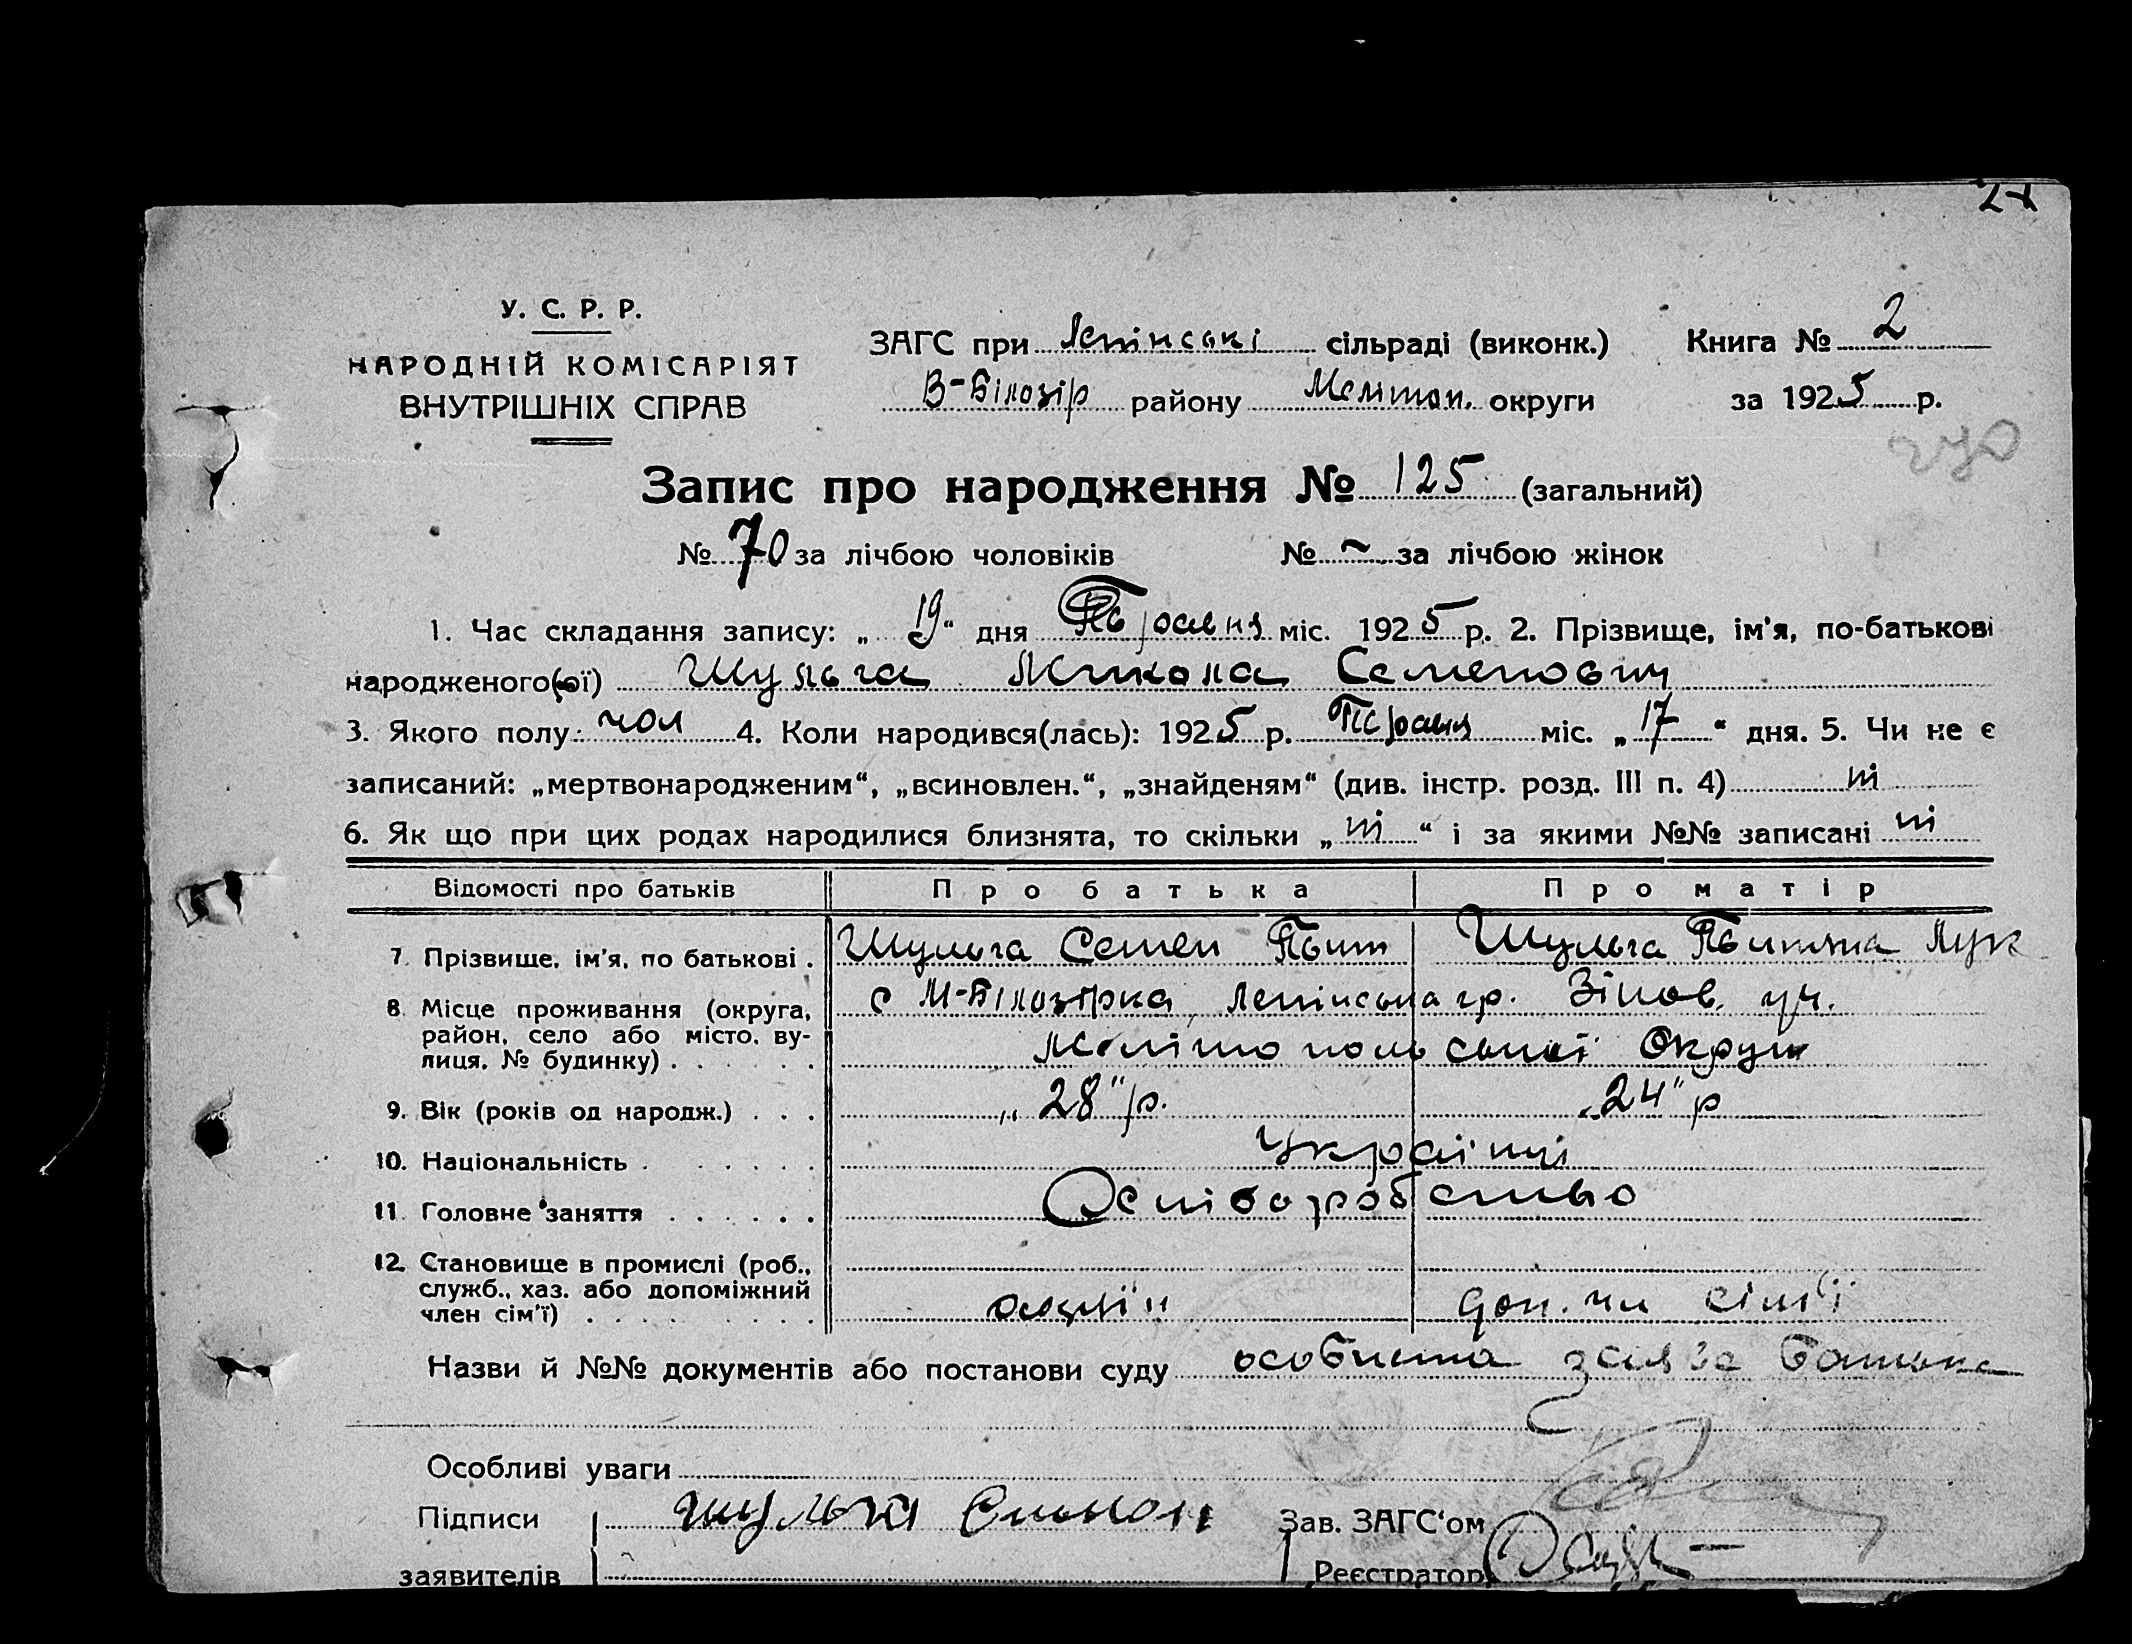 У. С. Р. Р.
НАРОДНІЙ КОМІСАРІЯТ
ВНУТРІШНІХ СПРАВ
ЗАГС при Лепінські сільраді (виконк.)
В-Білозір району Мелітоп. округи
Книга № 2
за 1925 р.
270
Запис про народження № 125 (загальний)
№ 70 за лічбою чоловіків № — за лічбою жінок
1. Час складання запису: „19“ дня міс. 1925 р. 2. Прізвище, ім'я, по-батькові
народженого(ої) Шульга Микола Семенович
3. Якого полу: чол 4. Коли народився(лась): 1925 р. міс. „17“ дня. 5. Чи не є
записаний: „мертвонародженим“, „всиновлен.“, „знайденям“ (див. інстр. розд. III п. 4) ні
6. Як що при цих родах народилися близнята, то скільки „ні“ і за якими №№ записані ні
Відомості про батьків Про батька Про матір
7. Прізвище, ім'я, по батькові . Шульга Семен Шульга Лук
8. Місце проживання (округа, с М-Білозірка, Лепінська гр.
район, село або місто, ву-
лиця, № будинку) . . . . . . Мелітопольської Округи
9. Вік (років од народж.) . . . „28“ р. „24“ р
10. Національність . . . . . . Українці
11. Головне заняття . . . . . . Хліборобство
12. Становище в промислі (роб.,
служб., хаз. або допоміжний
член сім'ї) . . . . . . . . доп. чл сім'ї
Назви й №№ документів або постанови суду особиста заява батька
Особливі уваги
Підписи Шульга Зав. ЗАГС'ом
заявителів Реєстратор